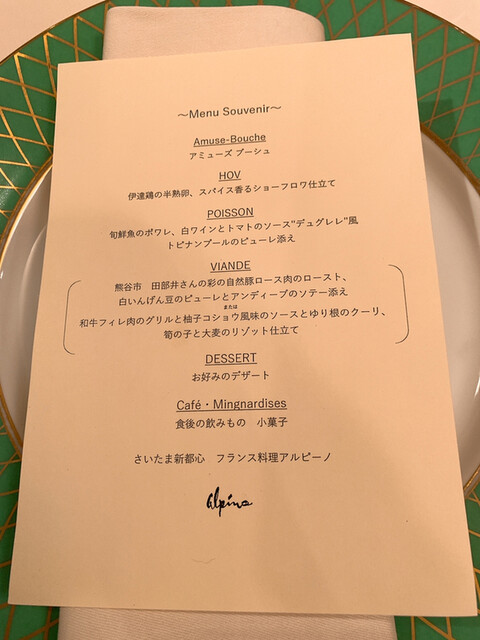 ～Menu Souvenir～
Amuse-Bouche
アミューズ ブーシュ
HOV
伊達鶏の半熟卵、スパイス香るショーフロワ仕立て
POISSON
旬鮮魚のポワレ、白ワインとトマトのソース"デュグレレ"風
トピナンブールのピューレ添え
VIANDE
熊谷市　田部井さんの彩の自然豚ロース肉のロースト、
白いんげん豆のピューレとアンディーブのソテー添え
または
和牛フィレ肉のグリルと柚子コショウ風味のソースとゆり根のクーリ、
筍の子と大麦のリゾット仕立て
DESSERT
お好みのデザート
Café・Mingnardises
食後の飲みもの　小菓子
さいたま新都心　フランス料理アルピーノ
alpino